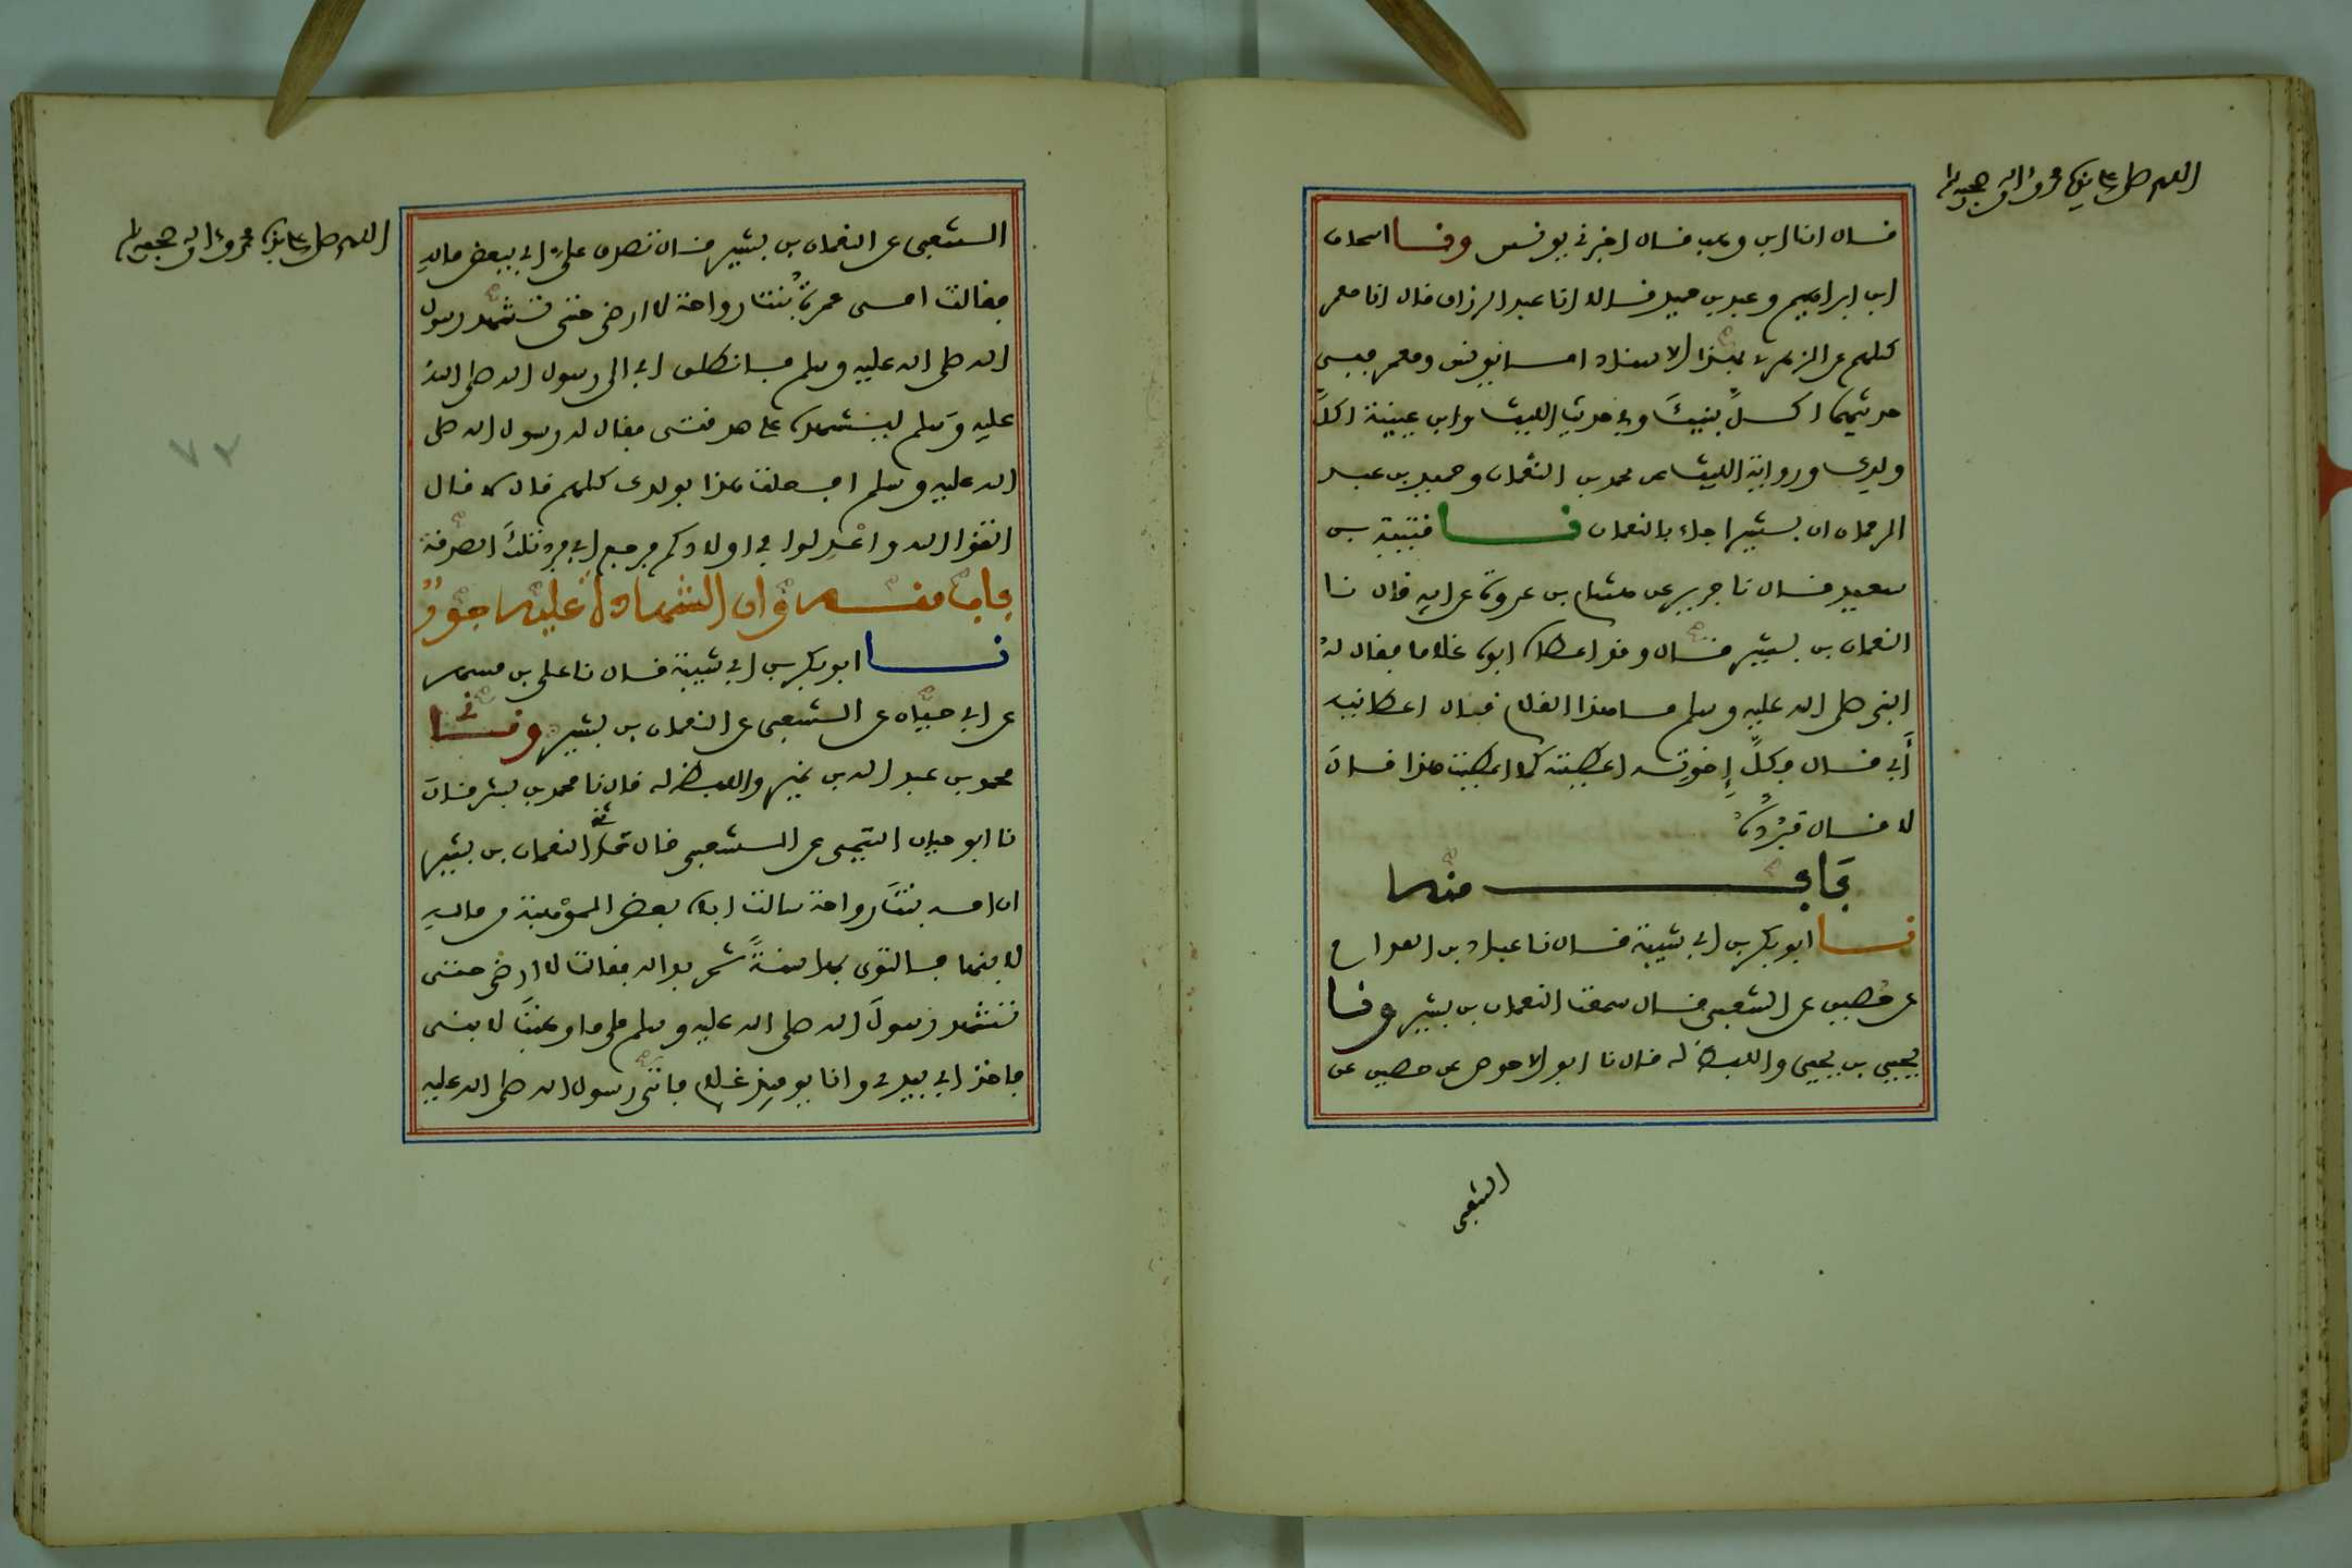 اللهم صل على نبينا محمد وءاله وصحبه وسلم
قال انا ابن وهب قال اخبرني يونس ونا اسحاق
ابن ابراهيم وعبد بن حميد قالا انا عبد الرزاق قال انا معمر
كلهم عن الزهري بهذا الاسناد اما يونس ومعمر ففي
حديثهما اكل بنيك وفي حديث الليث وابن عيينة اكل
ولدك ورواية الليث عن محمد بن النعمان وحميد بن عبد
الرحمان ان بشيرا جاء بالنعمان نا قتيبة بن
سعيد قال نا جرير عن هشام بن عروة عن ابيه قال نا
النعمان بن بشير قال وقد اعطاه ابوه غلاما فقال له
النبي صلى الله عليه وسلم ما هذا الغلام قال اعطانيه
أبي قال فكل إخوته اعطيته كما اعطيت هذا قال
لا قال فرده
باب منه
نا ابو بكر بن ابي شيبة قال نا عباد بن العوام
عن حصين عن الشعبي قال سمعت النعمان بن بشير ونا
يحيى بن يحيى واللفظ له قال نا ابو الاحوص عن حصين عن
الشعبي
اللهم صل على نبينا محمد وءاله وصحبه وسلم
الشعبي عن النعمان بن بشير قال تصدق علي ابي ببعض ماله
فقالت امي عمرة بنت رواحة لا ارضى حتى تشهد رسول
الله صلى الله عليه وسلم فانطلق ابي الى رسول الله صلى الله
عليه وسلم ليشهده على صدقتي فقال له رسول الله صلى
الله عليه وسلم افعلت هذا بولدك كلهم قال لا قال
اتقوا الله واعدلوا في اولادكم فرجع ابي فرد تلك الصدقة
باب منه وان الشهادة عليه جور
نا ابو بكر بن ابي شيبة قال نا علي بن مسهر
عن ابي حيان عن الشعبي عن النعمان بن بشير ونا
محمد بن عبد الله بن نمير واللفظ له قال نا محمد بن بشر قال
نا ابو حيان التيمي عن الشعبي قال حدثني النعمان بن بشير
ان امه بنت رواحة سالت اباه بعض الموهبة من ماله
لابنها فالتوى بها سنة ثم بدا له فقالت لا ارضى حتى
تشهد رسول الله صلى الله عليه وسلم على ما وهبت لابني
فاخذ ابي بيدي وانا يوميذ غلام فاتى رسول الله صلى الله عليه
٧٢